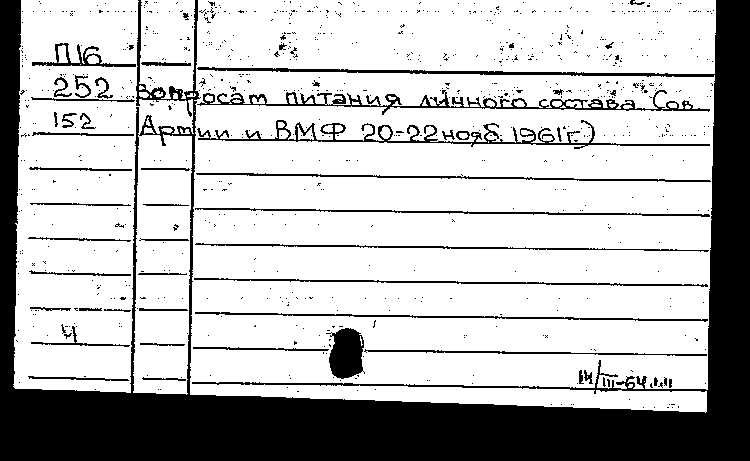 2.
П16
252 вопросам питания личного состава Сов.
152 Армии и ВМФ 20-22 нояб. 1961 г.)
4